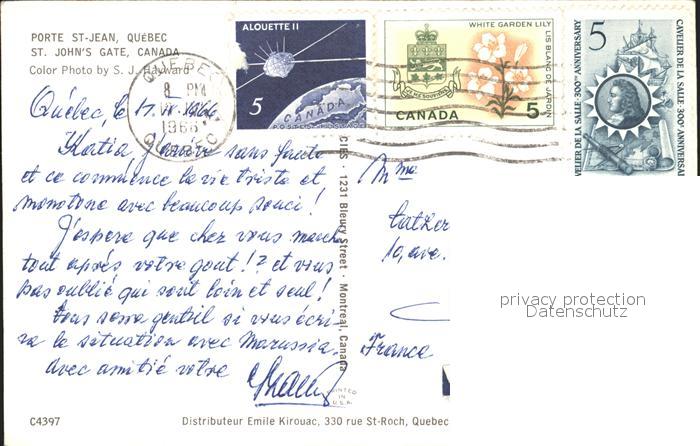 PORTE ST-JEAN, QUÉBEC
ST. JOHN'S GATE, CANADA
Color Photo by S. J. Hayward
ALOUETTE II
5
CANADA
WHITE GARDEN LILY
LIS BLANC DE JARDIN
JE ME SOUVIENS
CANADA
5
5
CAVELIER DE LA SALLE · 300e ANNIVERSARY
QUEBEC
8 PM
1966
QUEBEC
Québec, le 1966
Katia sans faute
et ce commence la vie triste et
monotone avec beaucoup !
J'espère que chez vous marche
tout après votre gout !? et vous
pas oublié qui sont loin et seul !
Vous gentil si vous écri-
ra la situation avec Marussia.
Avec amitié votre
CIES · 1231 Bleury Street · Montreal, Canada
PRINTED IN U.S.A.
Mme
10, ave.
France
privacy protection
Datenschutz
C4397
Distributeur Emile Kirouac, 330 rue St-Roch, Quebec